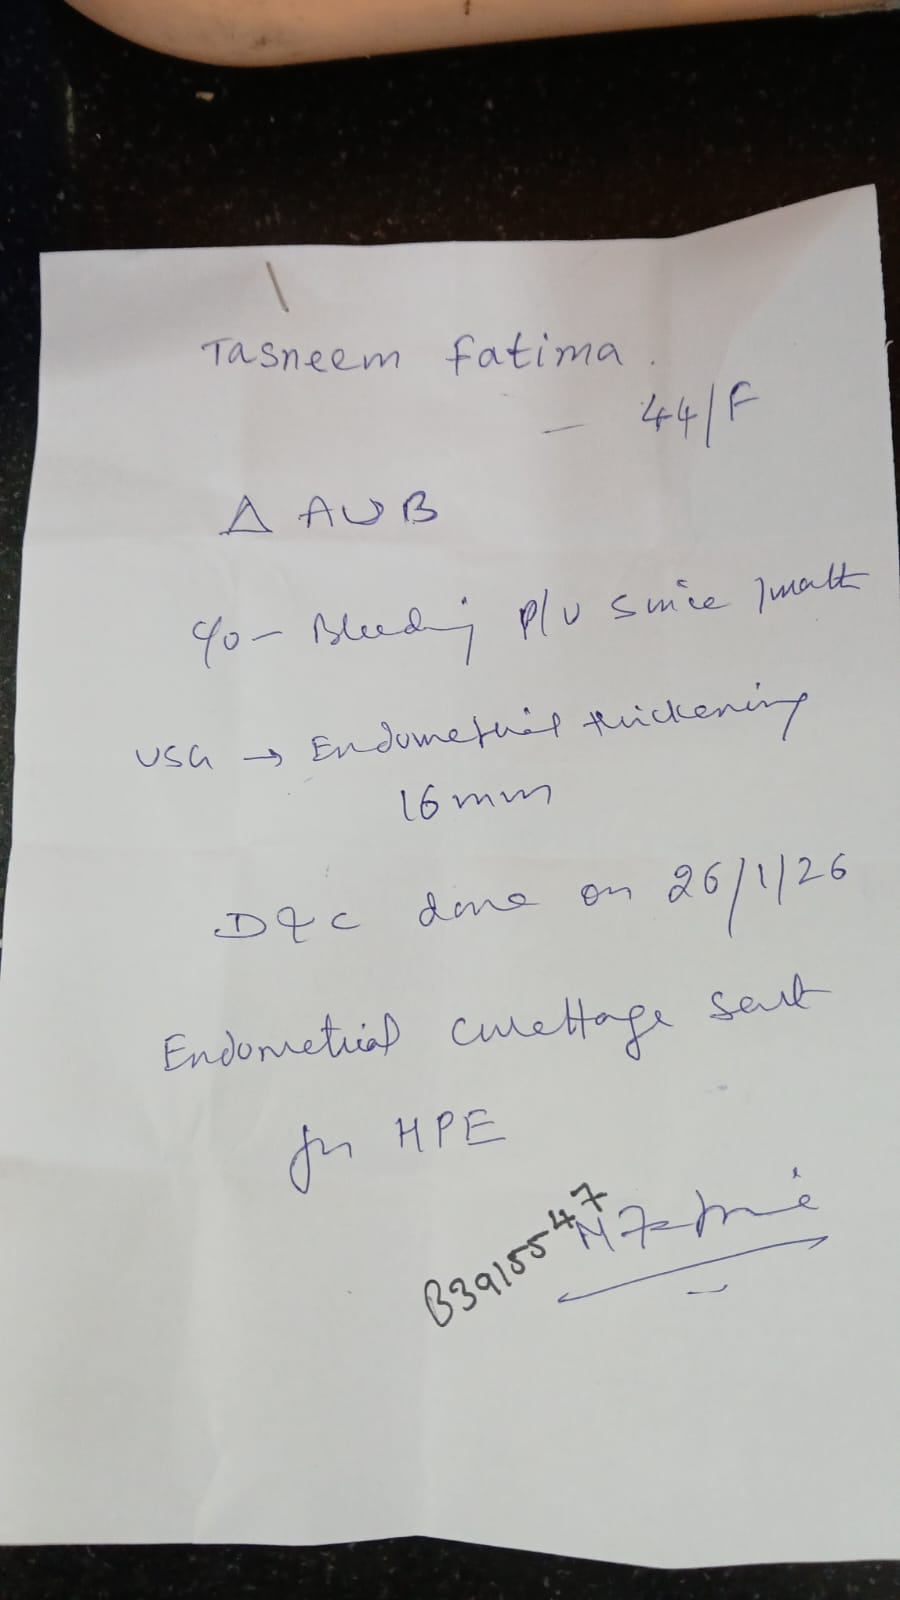 Tasneem Fatima.
— 44/F
Δ AUB
c/o - Bleeding P/V Since 1 month
USG → Endometrial thickening
16mm
D&C done on 26/1/26
Endometrial curettage sent
for HPE
B3915547